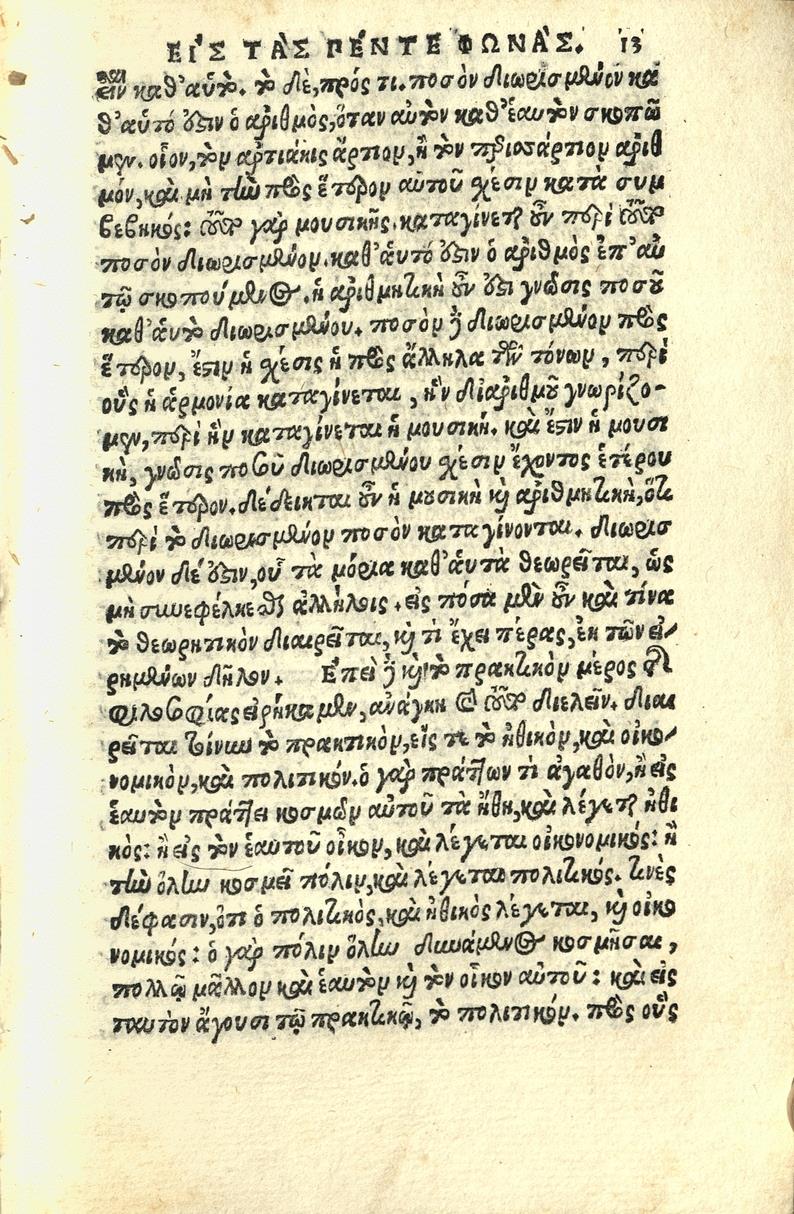 ΕΙ᾿Σ ΤΑ`Σ ΠΕ´ΝΤΕ ΦΩΝΑ`Σ. 13
εἶν καθ᾽αὑτὸ. τὸ δὲ, πρός τι. ποσὸν διωρισμένον κα
θ᾽αὑτό ὅξιν ὁ ἀριθμὸς, ὅταν αὐτὸν καθ᾽ἑαυτὸν σκοπῶ
μεν. οἷον, τὸν ἀρτιάκις ἄρτιον, ἢ τὸν περιοσάρτιον ἀριθ
μόν, καὶ μὴ τὴν πρὸς ἕτερον αὐτοῦ χέσιν κατὰ συμ
βεβηκός: ὥσπερ γὰρ μουσικῆς. καταγίνεται οὖν περὶ
ποσὸν διωρισμένον. καθ᾽ἁυτό ἐστιν ὁ ἀριθμὸς ἐπ᾽αὐ
τῷ σκοπούμενος. ἡ ἀριθμητικὴ οὖν ἐστι γνῶσις ποσοῦ
καθ᾽ἁυτὸ διωρισμένου. ποσὸν δὲ διωρισμένον πρὸς
ἕτερον, ἔστιν ἡ χέσις ἡ πρὸς ἄλληλα τῶν τόνων, περὶ
οὓς ἡ ἁρμονία καταγίνεται, ἣν δἰαριθμοῦ γνωρίζο-
μεν, περὶ ἣν καταγίνεται ἡ μουσική. καὶ ἔστιν ἡ μουσι
κὴ, γνῶσις ποσοῦ διωρισμένου χέσιν ἔχοντος ἑτέρου
πρὸς ἕτερον. δέδεικται οὖν ἡ μουσικὴ καὶ ἀριθμητικὴ, ὅτι
περὶ τὸ διωρισμένον ποσὸν καταγίνονται. διωρισ
μένον δέ ἐστιν, οὗ τὰ μόρια καθ᾽ἁυτὰ θεωρεῖται, ὡς
μὴ συνεφέλκεσθαι ἀλλήλοις. εἰς πόσα μὲν οὖν καὶ τίνα
τὸ θεωρητικὸν διαιρεῖται, καὶ τί ἔχει πέρας, ἐκ τῶν εἰ
ρημένων δῆλον. Ἐπεὶ δὲ καὶ τὸ πρακτικὸν μέρος τῆς
φιλοσοφίας εἰρήκαμεν, ἀνάγκη καὶ διελεῖν. διαι
ρεῖται τοίνυν τὸ πρακτικὸν, εἴς τε τὸ ἠθικὸν, καὶ οἰκο
νομικὸν, καὶ πολιτικόν. ὁ γὰρ πράττων τὶ ἀγαθὸν, ἢ εἰς
ἑαυτὸν πράττει κοσμῶν αὐτοῦ τὰ ἤθη, καὶ λέγεται ἠθι
κὸς: ἢ εἰς τὸν ἑαυτοῦ οἶκον, καὶ λέγεται οἰκονομικός: ἢ
τὴν ὅλην κοσμεῖ πόλιν, καὶ λέγεται πολιτικός. τινὲς
δέ φασιν, ὅτι ὁ πολιτικὸς, καὶ ἠθικὸς λέγεται, καὶ οἰκο
νομικός: ὁ γὰρ πόλιν ὅλην δυνάμενος κοσμῆσαι,
πολλῷ μᾶλλον καὶ ἑαυτὸν καὶ τὸν οἶκον αὐτοῦ: καὶ εἰς
ταυτὸν ἄγουσι τῷ πρακτικῷ, τὸ πολιτικόν. πρὸς οὓς